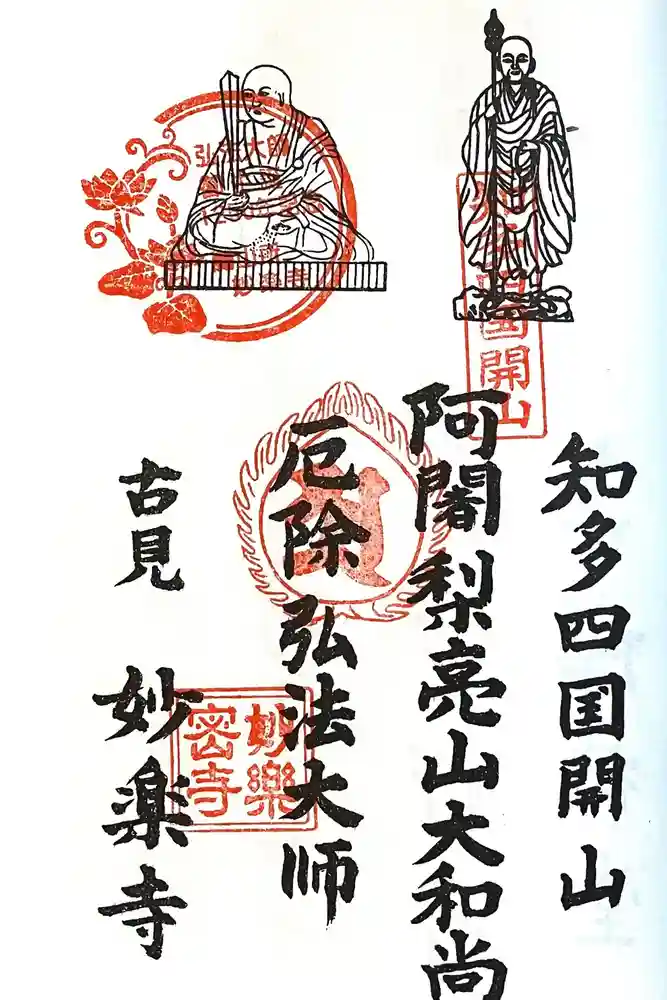 知多四国開山
阿闍梨亮山大和尚
厄除弘法大師
古見
妙楽寺
弘法大師
四国開山
妙樂
密寺